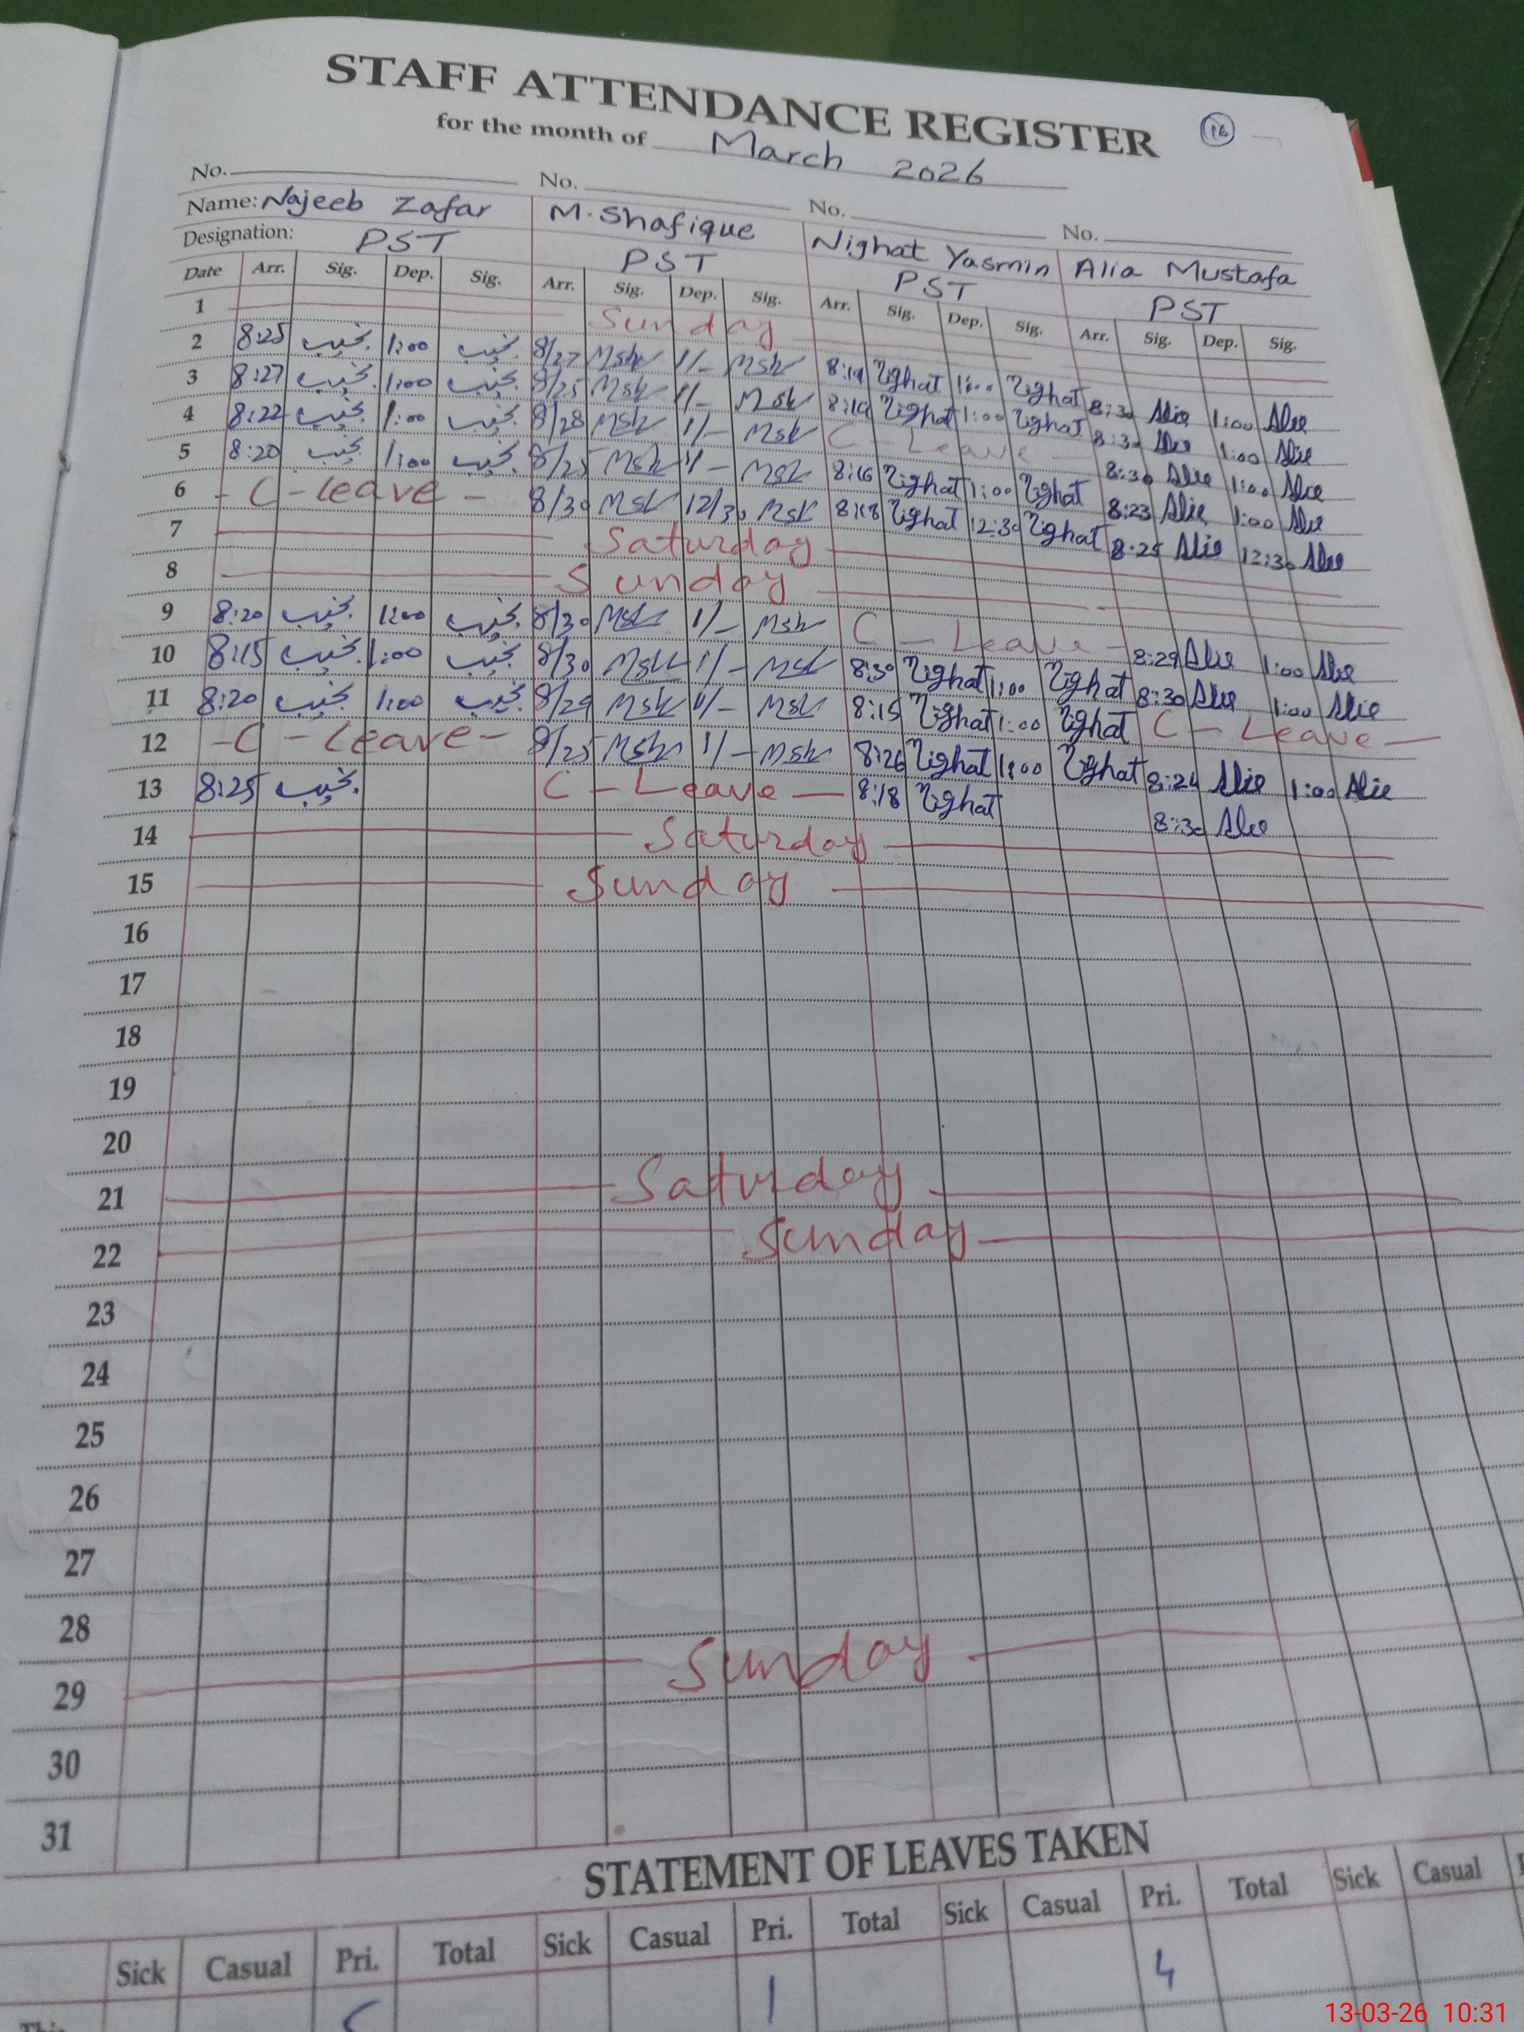 STAFF ATTENDANCE REGISTER
16
for the month of March 2026
No. No. No. No.
Name: Najeeb Zafar M. Shafique Nighat Yasmin Alia Mustafa
Designation: PST PST PST PST
Date Arr. Sig. Dep. Sig. Arr. Sig. Dep. Sig. Arr. Sig. Dep. Sig. Arr. Sig. Dep. Sig.
1 Sunday
2 8:25 نجیب 1:00 نجیب 8/27 Msk 1/- Msk 8:19 Nighat 1:00 Nighat 8:30 Alia 1:00 Alia
3 8:27 نجیب 1:00 نجیب 8/25 Msk 1/- Msk 8:19 Nighat 1:00 Nighat 8:30 Alia 1:00 Alia
4 8:22 نجیب 1:00 نجیب 8/28 Msk 1/- Msk C - Leave - 8:30 Alia 1:00 Alia
5 8:20 نجیب 1:00 نجیب 8/25 Msk 1/- Msk 8:16 Nighat 1:00 Nighat 8:23 Alia 1:00 Alia
6 - C - leave - 8/30 Msk 12/30 Msk 8:18 Nighat 12:30 Nighat 8:25 Alia 12:30 Alia
7 Saturday
8 Sunday
9 8:20 نجیب 1:00 نجیب 8/30 Msk 1/- Msk C - Leave - 8:29 Alia 1:00 Alia
10 8:15 نجیب 1:00 نجیب 8/30 Msk 1/- Msk 8:30 Nighat 1:00 Nighat 8:30 Alia 1:00 Alia
11 8:20 نجیب 1:00 نجیب 8/29 Msk 1/- Msk 8:15 Nighat 1:00 Nighat C - Leave -
12 - C - Leave - 8/25 Msk 1/- Msk 8:26 Nighat 1:00 Nighat 8:24 Alia 1:00 Alia
13 8:25 نجیب C - Leave - 8:18 Nighat 8:30 Alia
14 Saturday
15 Sunday
16
17
18
19
20
21 Saturday
22 Sunday
23
24
25
26
27
28
29 Sunday
30
31
STATEMENT OF LEAVES TAKEN
Sick Casual Pri. Total Sick Casual Pri. Total Sick Casual Pri. Total Sick Casual
1 4
13-03-26 10:31